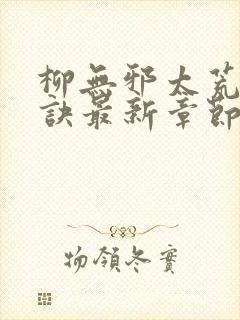 柳無邪太荒
訣最新章節
物領冬實